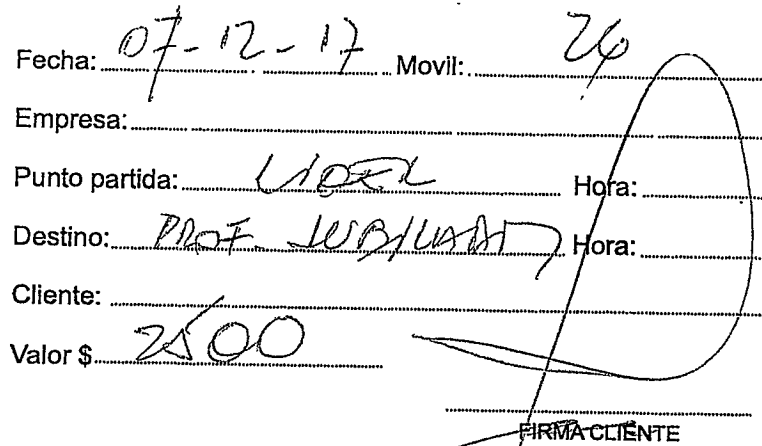 Fecha: 07-12-17 Movil: 26
Empresa:
Punto partida: LIDER Hora:
Destino: PROF. JUBILADO Hora:
Cliente:
Valor $ 2500
FIRMA CLIENTE